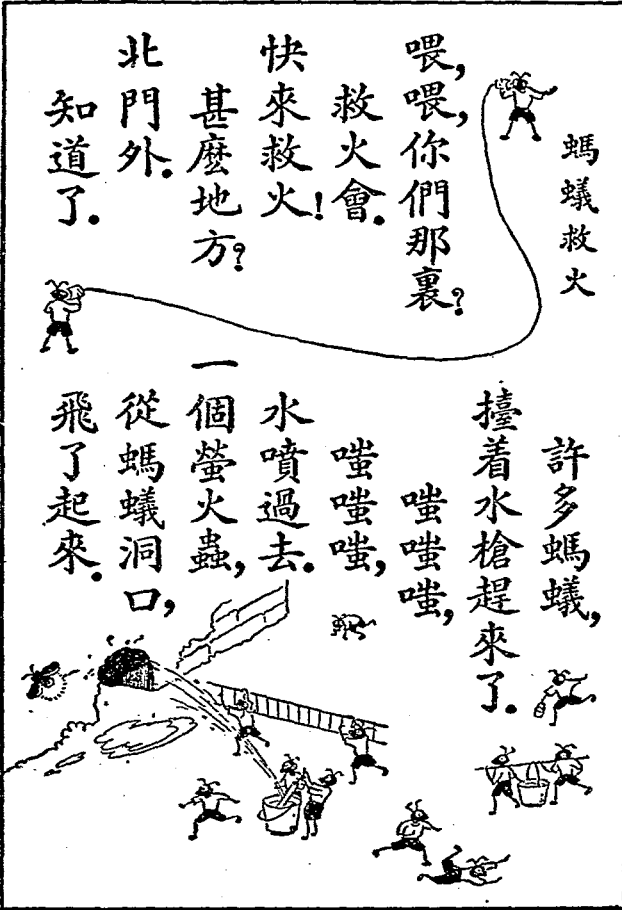 螞蟻救火
喂,喂,你們那裏?
救火會.
快來救火!
甚麼地方?
北門外.
知道了.
許多螞蟻,
擡着水槍趕來了.
嗤嗤嗤,
嗤嗤嗤,
水噴過去.
一個螢火蟲,
從螞蟻洞口,
飛了起來.